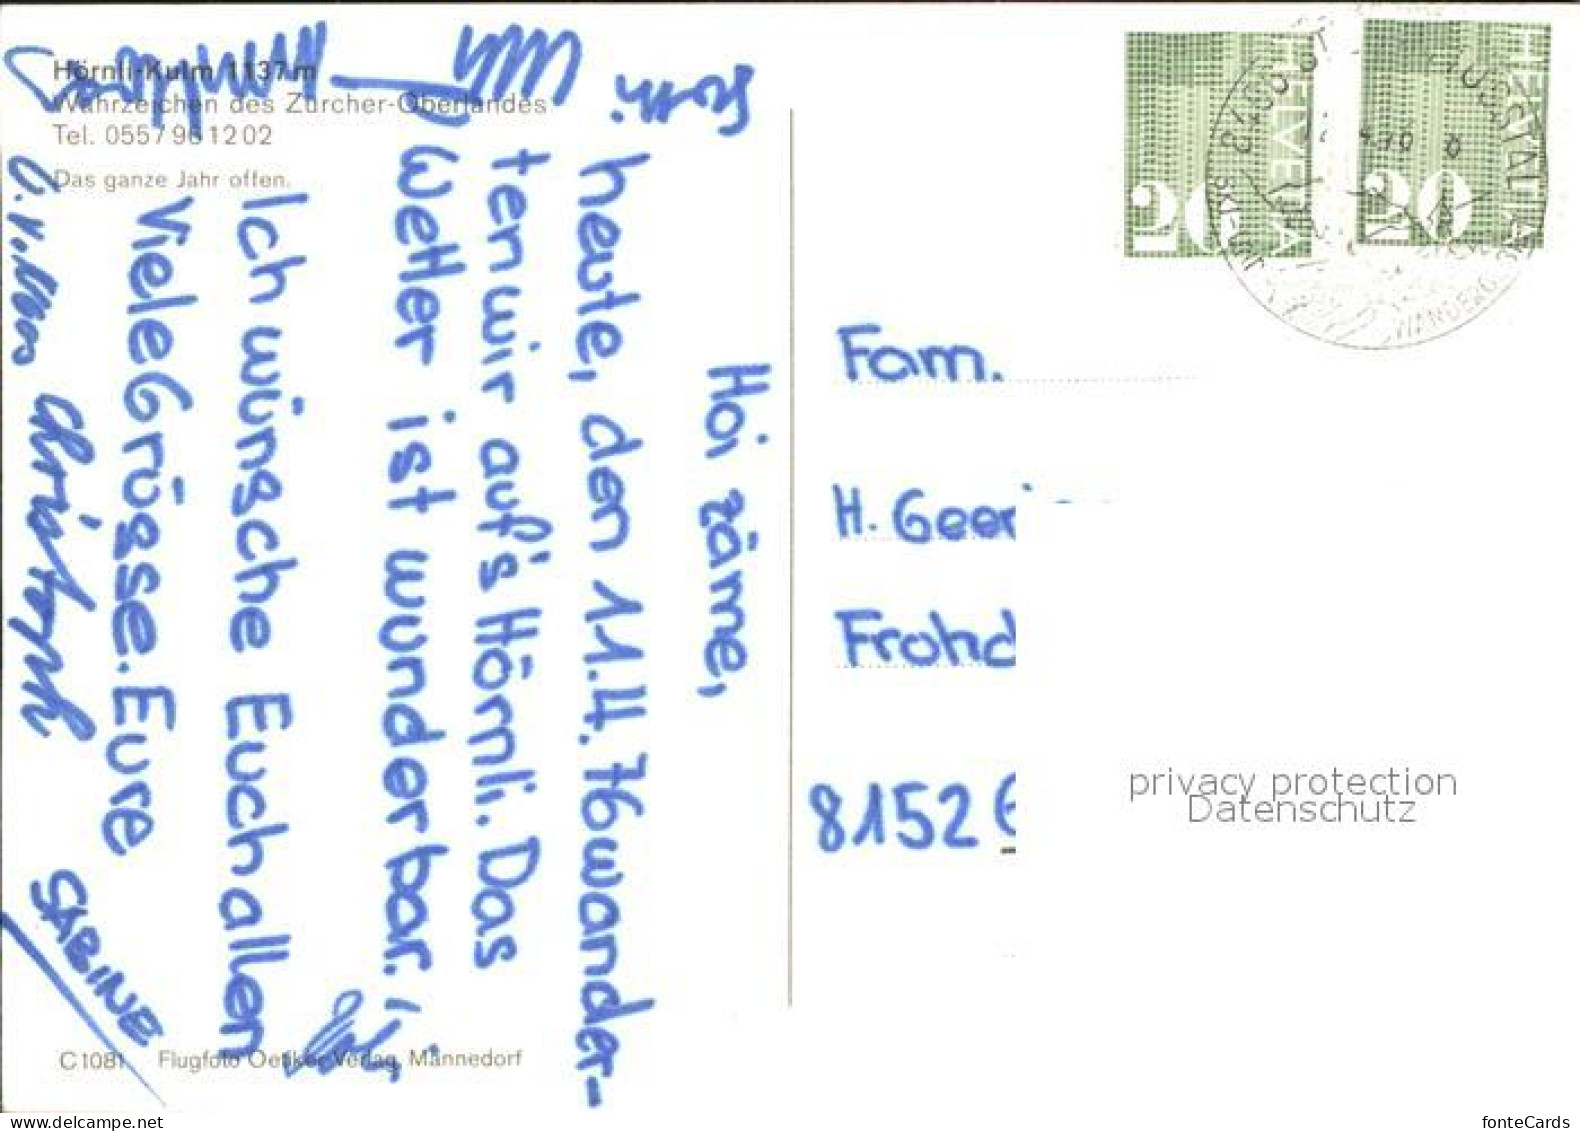 Hörnli-Kulm 1137 m
Wahrzeichen des Zürcher-Oberlandes
Tel. 055/961202
Das ganze Jahr offen.
Hoi zäme,
heute, den 11.4.76 wander-
ten wir auf's Hörnli. Das
Wetter ist wunderbar.
Ich wünsche Euch allen
Viele Grüsse. Eure
SABINE
Christoph
C 1081 Flugfoto Oetiker Verlag, Männedorf
HELVETIA
20
HELVETIA
20
Fam.
H. Geer
Frohd
8152 G
privacy protection
Datenschutz
fonteCards
Delcampe.net